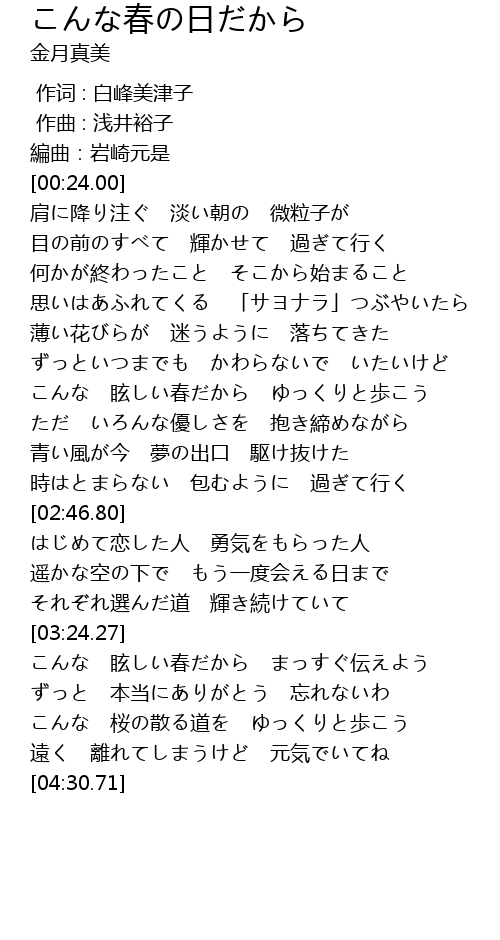 こんな春の日だから
金月真美
作词 : 白峰美津子
作曲 : 浅井裕子
編曲：岩崎元是
[00:24.00]
肩に降り注ぐ　淡い朝の　微粒子が
目の前のすべて　輝かせて　過ぎて行く
何かが終わったこと　そこから始まること
思いはあふれてくる　「サヨナラ」つぶやいたら
薄い花びらが　迷うように　落ちてきた
ずっといつまでも　かわらないで　いたいけど
こんな　眩しい春だから　ゆっくりと歩こう
ただ　いろんな優しさを　抱き締めながら
青い風が今　夢の出口　駆け抜けた
時はとまらない　包むように　過ぎて行く
[02:46.80]
はじめて恋した人　勇気をもらった人
遥かな空の下で　もう一度会える日まで
それぞれ選んだ道　輝き続けていて
[03:24.27]
こんな　眩しい春だから　まっすぐ伝えよう
ずっと　本当にありがとう　忘れないわ
こんな　桜の散る道を　ゆっくりと歩こう
遠く　離れてしまうけど　元気でいてね
[04:30.71]